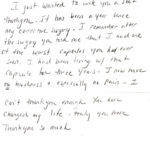 I just wanted to wish you a just
Thankyou. It has been a year since
my corrective surgery. I remember after
the surgery you told me that I had one
of the worst capsules you had ever
seen. I had been living w/ that
capsule for three years. I now have
no hardness & especially no pain - I
Can't thankyou enough. You have
changed my life - truly you have
Thankyou so much